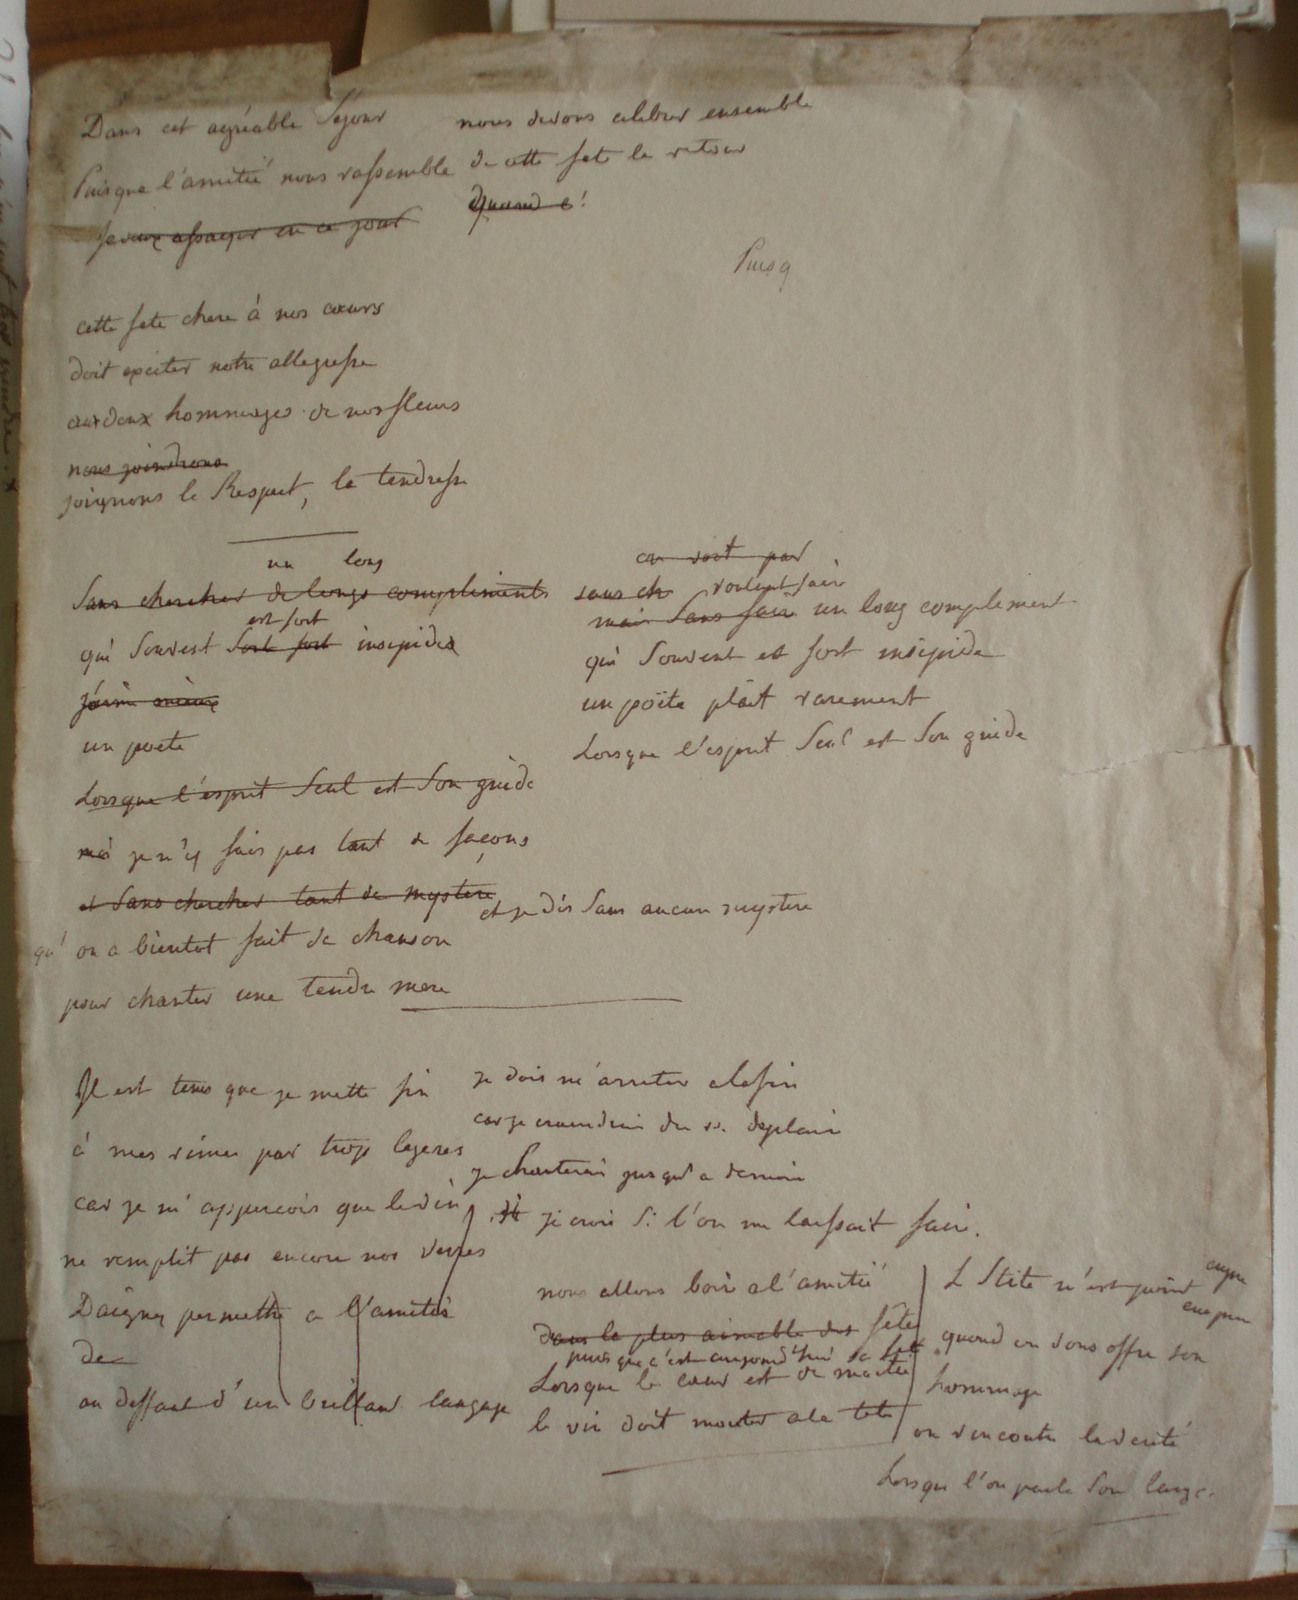 Dans cet agréable Séjour
Puisque l'amitié nous rassemble
Je veux essayer en ce jour
nous devons celebrer ensemble
de cette fete le retour
Quand c'
Puisq
cette fete chere à nos cœurs
doit exciter notre allegresse
aux doux hommages de nos fleurs
nous joindrons
joignons le Respect, la tendresse
un long
Sans chercher de longs compliments
est fort
qui Souvent Sont fort insipides
un poete
Lorsque l'esprit Seul est Son guide
je n'y fais pas tant de façons
et Sans chercher tant de mystere
et je dis Sans aucun mystere
qu' on a bientot fait de chanson
pour chanter une tendre mere
on voit par
sans ch vouloir faire
mais Sans faire un long compliment
qui Souvent est fort insipide
un poëte plait rarement
Lorsque l'esprit Seul est Son guide
Il est tems que je mette fin
à mes rimes par trop legeres
car je m'apperçois que le vin
ne remplit pas encore nos verres
Daignez permettre a l'amitié
de
au deffaut d'un brillant langage
je dois m'arreter a la fin
car je craindrais de vs. deplaire
je chanterais jusqu'a demain
je crois Si l'on me laissait faire.
nous allons boire a l'amitié
dans la plus aimable des fête
puis que c'est aujourd'hui sa fete
Lorsque le cœur est de moitié
le vin doit monter a la tete
n'est point
quand on vous offre son
hommage
on rencontre la verité
Lorsque l'on parle Son lang.